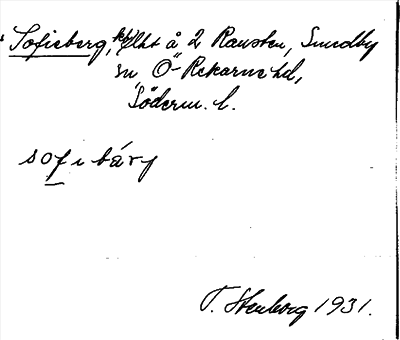 Sofieberg, lht å 2 Ransten, Sundby
sn Ö-Rekarne hd,
Söderm. l.
sofibärj
T. Stenborg 1931.